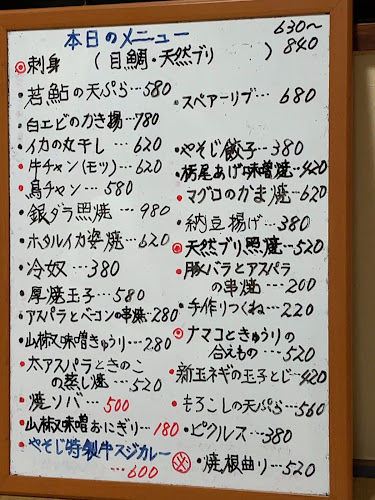 本日のメニュー
630〜
840
刺身 (目鯛・天然ブリ)
・若鮎の天ぷら…580
・白エビのかき揚…780
・イカの丸干し…620
・牛チャン(モツ)…620
・鳥チャン…580
・銀ダラ照焼…980
・ホタルイカ姿焼…620
・冷奴…380
・厚焼玉子…580
・アスパラとベーコンの串焼…280
・山椒味噌きゅうり…280
・太アスパラときのこ
の蒸し焼…520
・焼ソバ…500
・山椒味噌おにぎり…180
・やそじ特製牛スジカレー
…600
・スペアーリブ…680
・やそじ餃子…380
・栃尾あげ味噌焼…420
・マグロのかま焼…620
・納豆揚げ…380
天然ブリ照焼…520
・豚バラとアスパラ
の串焼…200
・手作りつくね…220
ナマコときゅうりの
合えもの…520
・新玉ネギの玉子とじ…420
・もろこしの天ぷら…560
・ピクルス…380
・焼根曲り…520